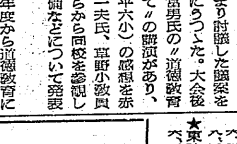 より討議した議案を
にうつった。大会後
富男氏の〃道徳教育
て〃の講演があり、
平六小）の感想を赤
一夫氏、草野小教員
らから同校を参観し
領などについて発表
年度から道徳教育に
★東
六、